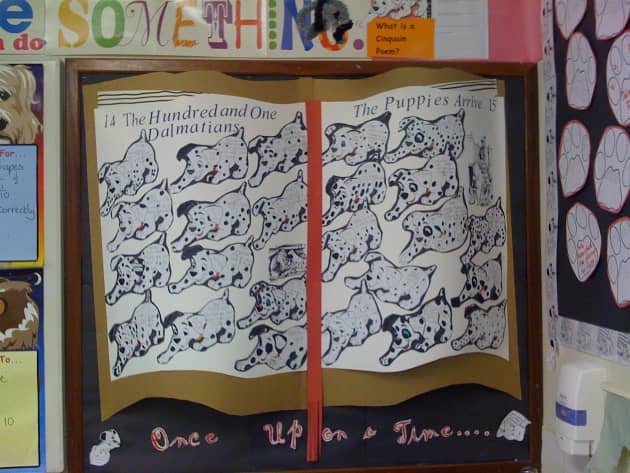 SOMETHING.
n do
What is a
Cinquain
Poem?
14 The Hundred and One
Dalmatians
The Puppies Arrive 15
For...
10
correctly
To...
10
Once Upon a Time....